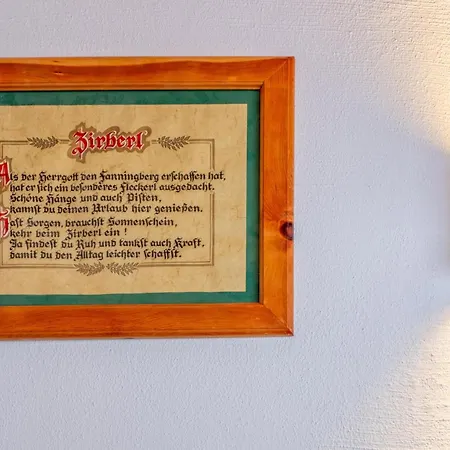 Zirberl
Als der Herrgott den Fanningberg erschaffen hat,
hat er sich ein besonderes Fleckerl ausgedacht.
Schöne Hänge und auch Pisten,
kannst du deinen Urlaub hier genießen.
Hast Sorgen, brauchst Sonnenschein,
kehr beim Zirberl ein !
Ja findest du Ruh und tankst auch Kraft,
damit du den Alltag leichter schaffst.